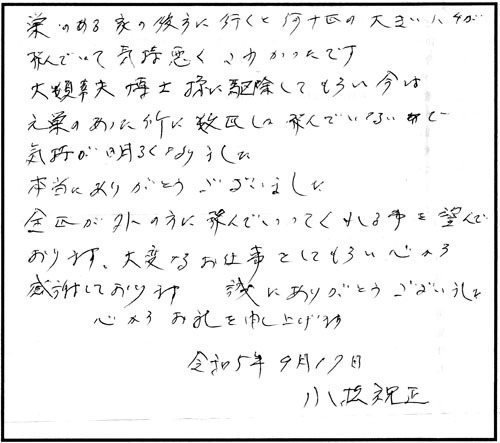 巣のある家の後方に行くと何十匹の大きいハチが
飛んでいて気持悪くこわかったです
大頭幸夫博士様に駆除してもらい今は
元巣のあった所に数匹しか飛んでいないので
気持が明るくなりました
本当にありがとうございました
全匹が外の方に飛んでいってくれる事を望んで
おります、大変なるお仕事をしてもらい心から
感謝しております 誠にありがとうございました
心からお礼を申し上げます
令和5年9月17日
小坂祝正